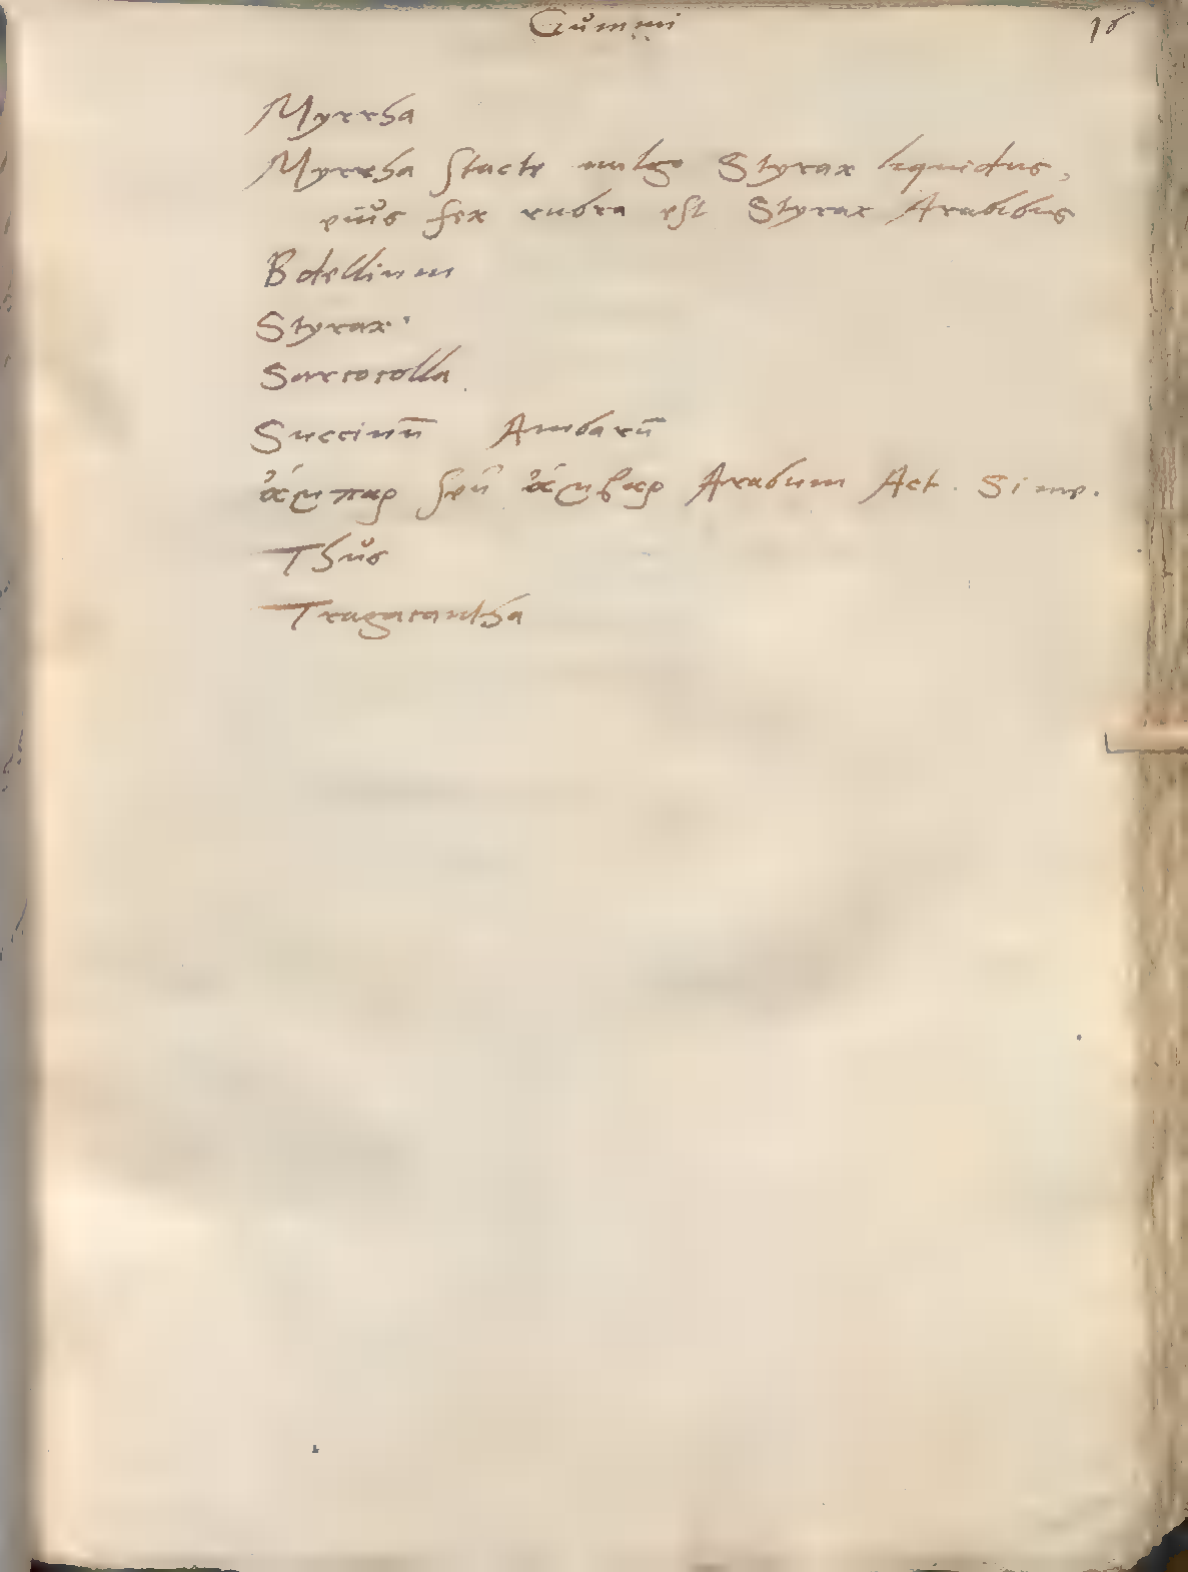 Gummi 16
Myrrha
Myrrha stacte uulgo Styrax liquidus,
eius fex rubra est Styrax Arabibus
Bdellium
Styrax
Sarcocolla
Succinū Ambarū
ἄμπαρ seu ἄμβαρ Arabum Aet. Sime.
Thus
Tragacantha